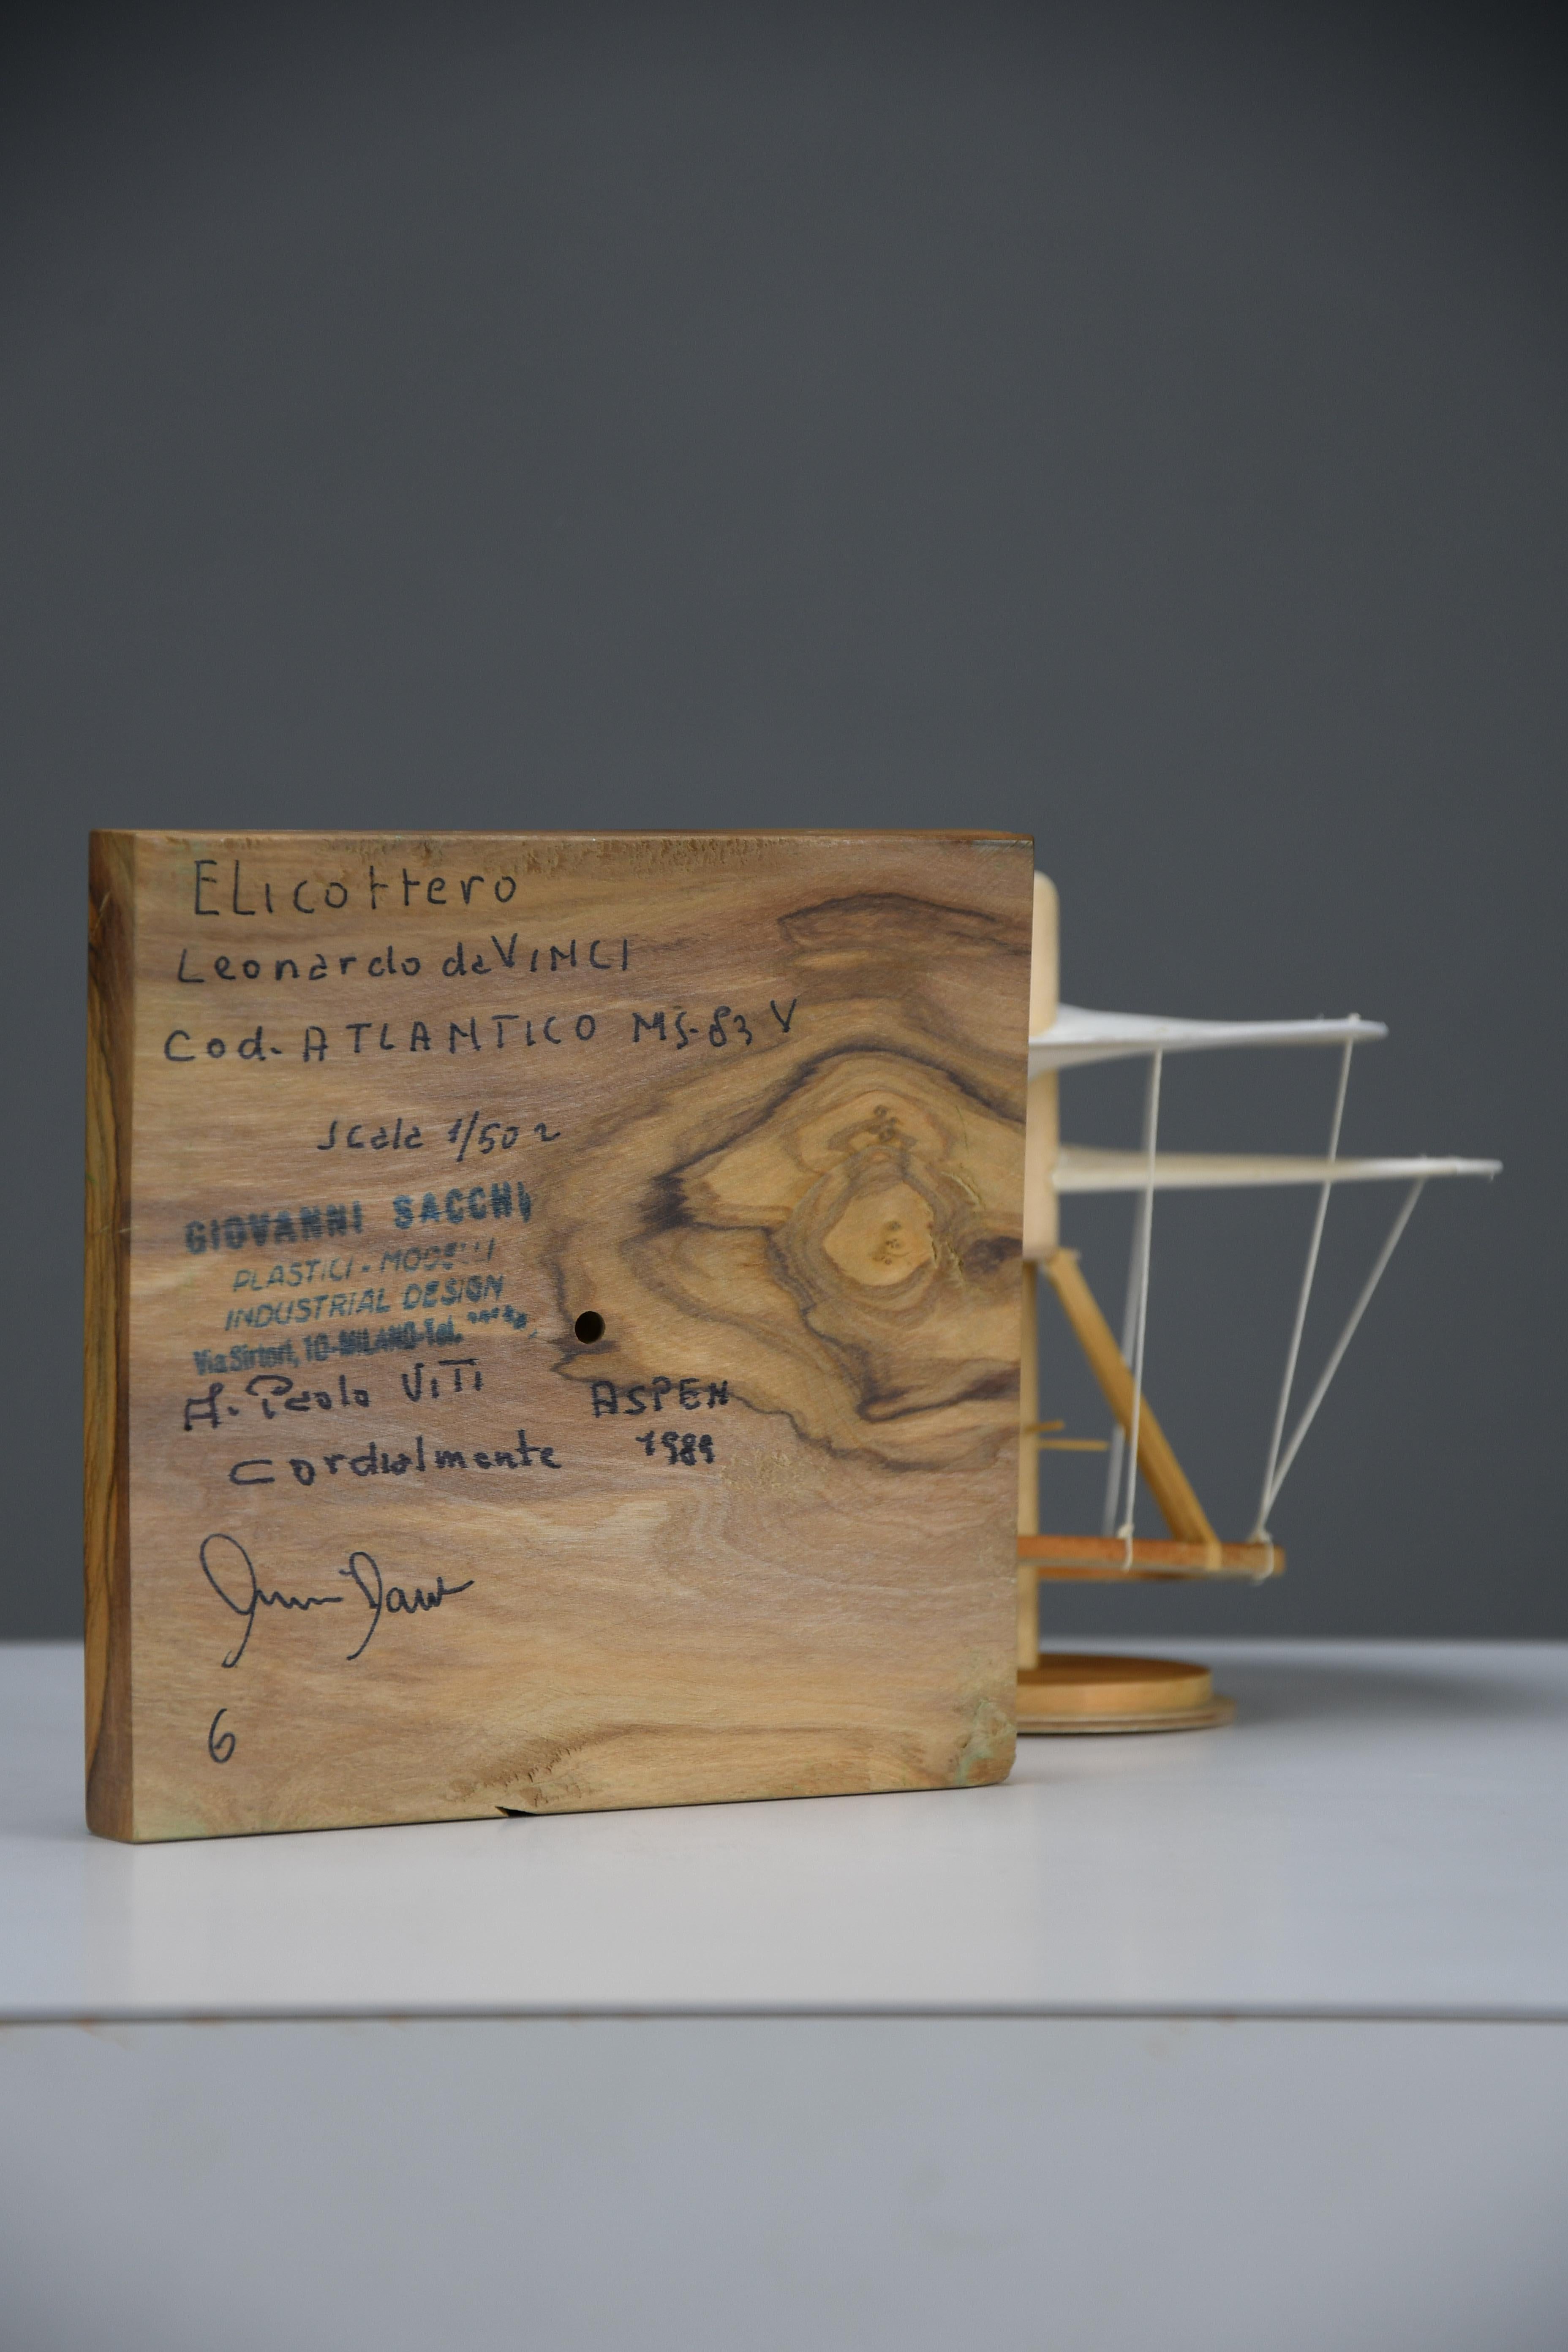 ELicottero
Leonardo da VINCI
Cod. ATLANTICO MS-83 V
Scala 1/50
GIOVANNI SACCHI
PLASTICI - MODELLI
INDUSTRIAL DESIGN
Via Sirtori, 10-MILANO-Tel.
A. Paolo ViTi
ASPEN
cordialmente
1989
6